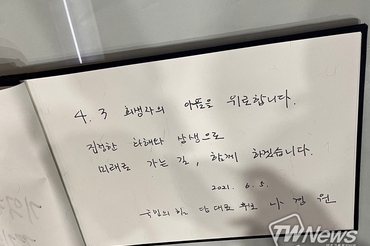 4. 3 희생자의 아픔을 위로합니다.
진정한 화해와 상생으로
미래로 가는 길, 함께 하겠습니다.
2021. 6. 5.
국민의힘 당대표 후보 나경원
TWNews